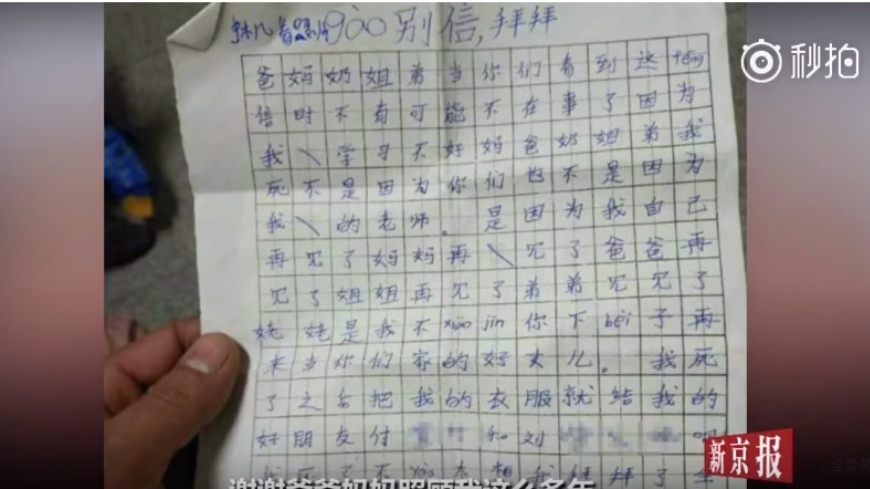 gào别信,拜拜
秒拍
爸妈奶姐弟当你们看到这fēng
信时不有可能不在事了因为
我\学习不好妈爸奶姐弟我
死不是因为你们也不是因为
我\的老师。是因为我自己
再见了妈妈再\见了爸爸再
见了姐姐再见了弟弟见见了
姥姥是我不xiào jìn你下bèi子再
来当你们家的好女儿。我死
了之后把我的衣服就给我的
好朋友付 和刘
新京报
谢谢爸爸妈妈照顾我这么多年